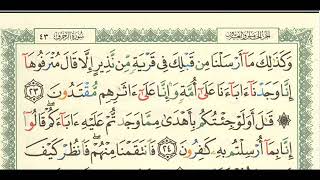 الجزء الخامس والعشرون سورة الزخرف ٤٣
وَكَذَٰلِكَ مَآ أَرْسَلْنَا مِن قَبْلِكَ فِى قَرْيَةٍ مِّن نَّذِيرٍ إِلَّا قَالَ مُتْرَفُوهَآ
إِنَّا وَجَدْنَآ ءَابَآءَنَا عَلَىٰٓ أُمَّةٍ وَإِنَّا عَلَىٰٓ ءَاثَٰرِهِم مُّقْتَدُونَ
٢٣ ۞ قَٰلَ أَوَلَوْ جِئْتُكُم بِأَهْدَىٰ مِمَّا وَجَدتُّمْ عَلَيْهِ ءَابَآءَكُمْ قَالُوٓا۟
إِنَّا بِمَآ أُرْسِلْتُم بِهِۦ كَٰفِرُونَ ٢٤ فَٱنتَقَمْنَا مِنْهُمْ فَٱنظُرْ كَيْفَ